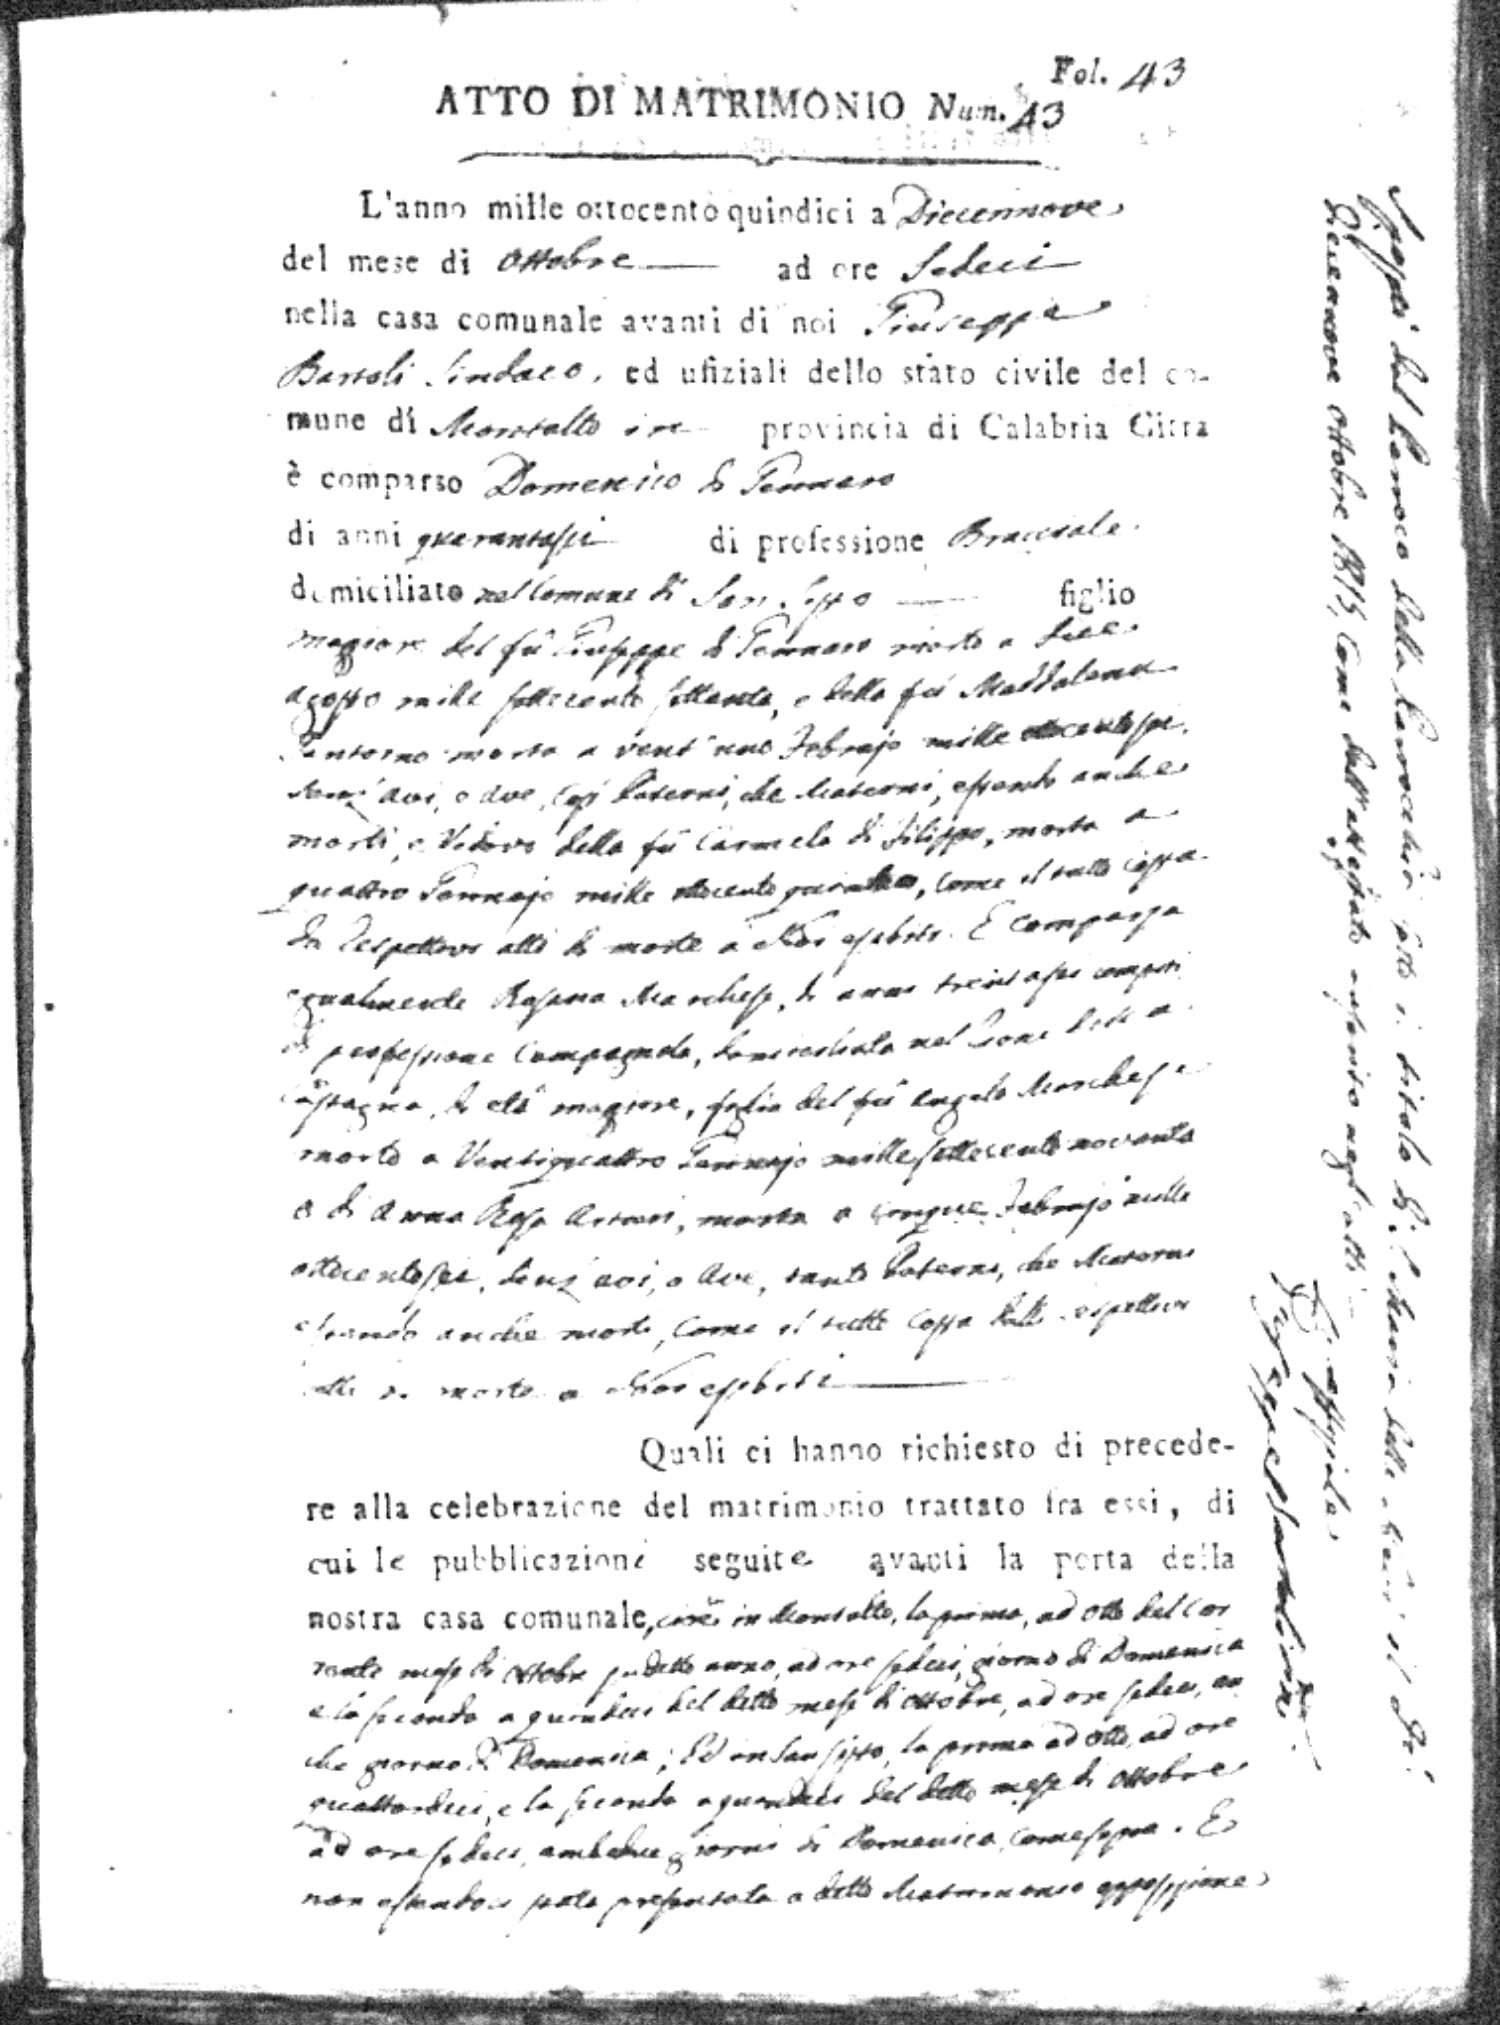 Fol. 43
ATTO DI MATRIMONIO Num. 43
L'anno mille ottocento quindici a Diecennove
del mese di Ottobre ad ore Sedeci
nella casa comunale avanti di noi Giuseppe
Bartoli Sindaco, ed ufiziali dello stato civile del co-
mune di Montalto in provincia di Calabria Citra
è comparso Domenico di Gennaro
di anni quarantasei di professione Bracciale
domiciliato nel Comune di San Sisto figlio
magiore del fù Giuseppe di Gennaro morto a
agosto mille settecento settanta, e della fù Maddalena
Santorno morta a vent'uno Febrajo mille ottocento sei,
senz'avi, o ave, così Paterni, che Materni, essendo anche
morti, e Vedovo della fù Carmela di Filippo, morta a
quattro Gennajo mille ottocento, come il tutto costa
da respettivi atti di morte a Noi esibiti. E comparsa
egualmente Rosana Marchese, di anni trentasei compiti
di professione Campagnola, domiciliata nel
Castagna, di età magiore, figlia del fù Angelo Marchese
morto a Ventiquattro Gennajo mille settecento novanta
e di Anna Rosa, morta a cinque Febrajo mille
ottocento sei, senz'avi, o ave, tanto Paterni, che Materni
essendo anche morti, come il tutto costa dalli respettivi
atti di morte a Noi esibiti
Quali ci hanno richiesto di precede-
re alla celebrazione del matrimonio trattato fra essi, di
cui le pubblicazioni seguite avanti la porta della
nostra casa comunale, cioè in Montalto, la prima, ad otto del cor
rente mese di Ottobre sudetto anno, ad ore sedeci, giorno di Domenica
e la seconda a quindeci del detto mese di Ottobre, ad ore sedeci, an
che giorno di Domenica; Ed in San Sisto, la prima ad otto, ad ore
quattordeci, e la seconda a quindeci del detto mese di Ottobre
ad ore sedeci, ambedue giorni di Domenica, come sopra. E
non essendosi stata presentata a detto Matrimonio opposizione
Sposati dal Parroco della Parocchia sotto il titolo di S. Maria della il dì
Diecennove Ottobre 1815, come dall'attestato inserito negl'atti
L'uffiziale
Giuseppe Bartoli